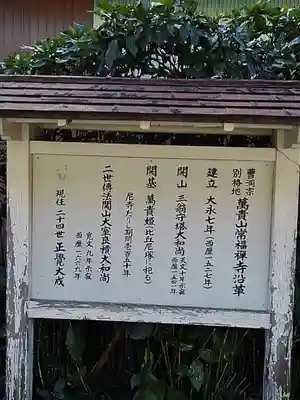 曹洞宗
別格地 萬貴山常福禅寺沿革
建立 大永七年(西暦一五二七年)
開山 三翁守塔大和尚
天文十年示寂
西暦一五四一年
開基 萬貴姫(比丘尼塚に祀る)
尼寺たりし期間壱百五十年
二世傳法開山大室良積大和尚
寛文九年示寂
西暦一六六九年
現住 二十四世 正覺大成